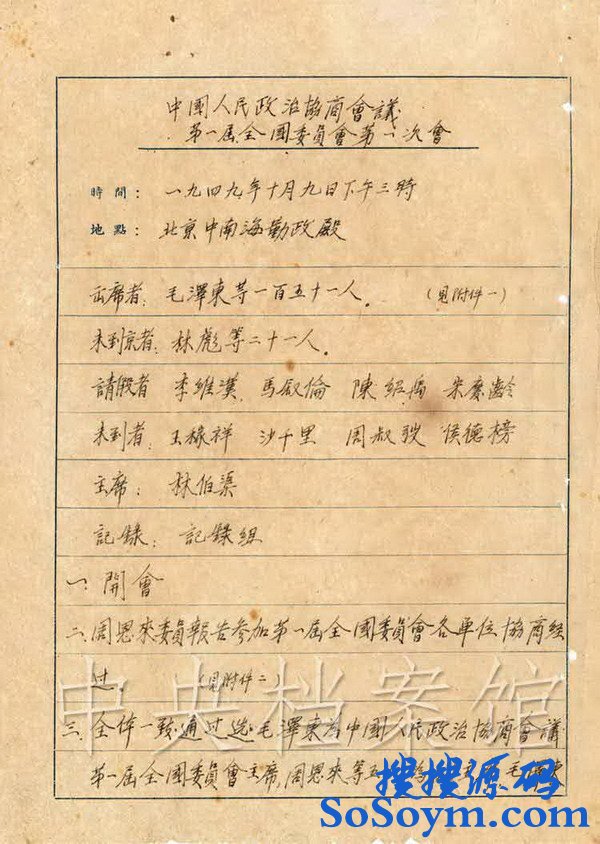 中國人民政治協商會議
第一屆全國委員會第一次會
時間： 一九四九年十月九日下午三時
地點： 北京中南海勤政殿
出席者：毛澤東等一百五十一人。 （見附件一）
未到京者：林彪等二十一人。
請假者 李維漢 馬叙倫 陳紹禹 朱學範
未到者：王稼祥 沙千里 周叔弢 侯德榜
主席：林伯渠
記錄：記錄組
一、開會
二、周恩來委員報告參加第一屆全國委員會各單位協商經
過。（見附件二）
三、全体一致通过选毛澤東为中國人民政治協商會議
第一屆全國委員會主席，周恩來等五
中央档案馆
搜搜源码
SoSoym.com